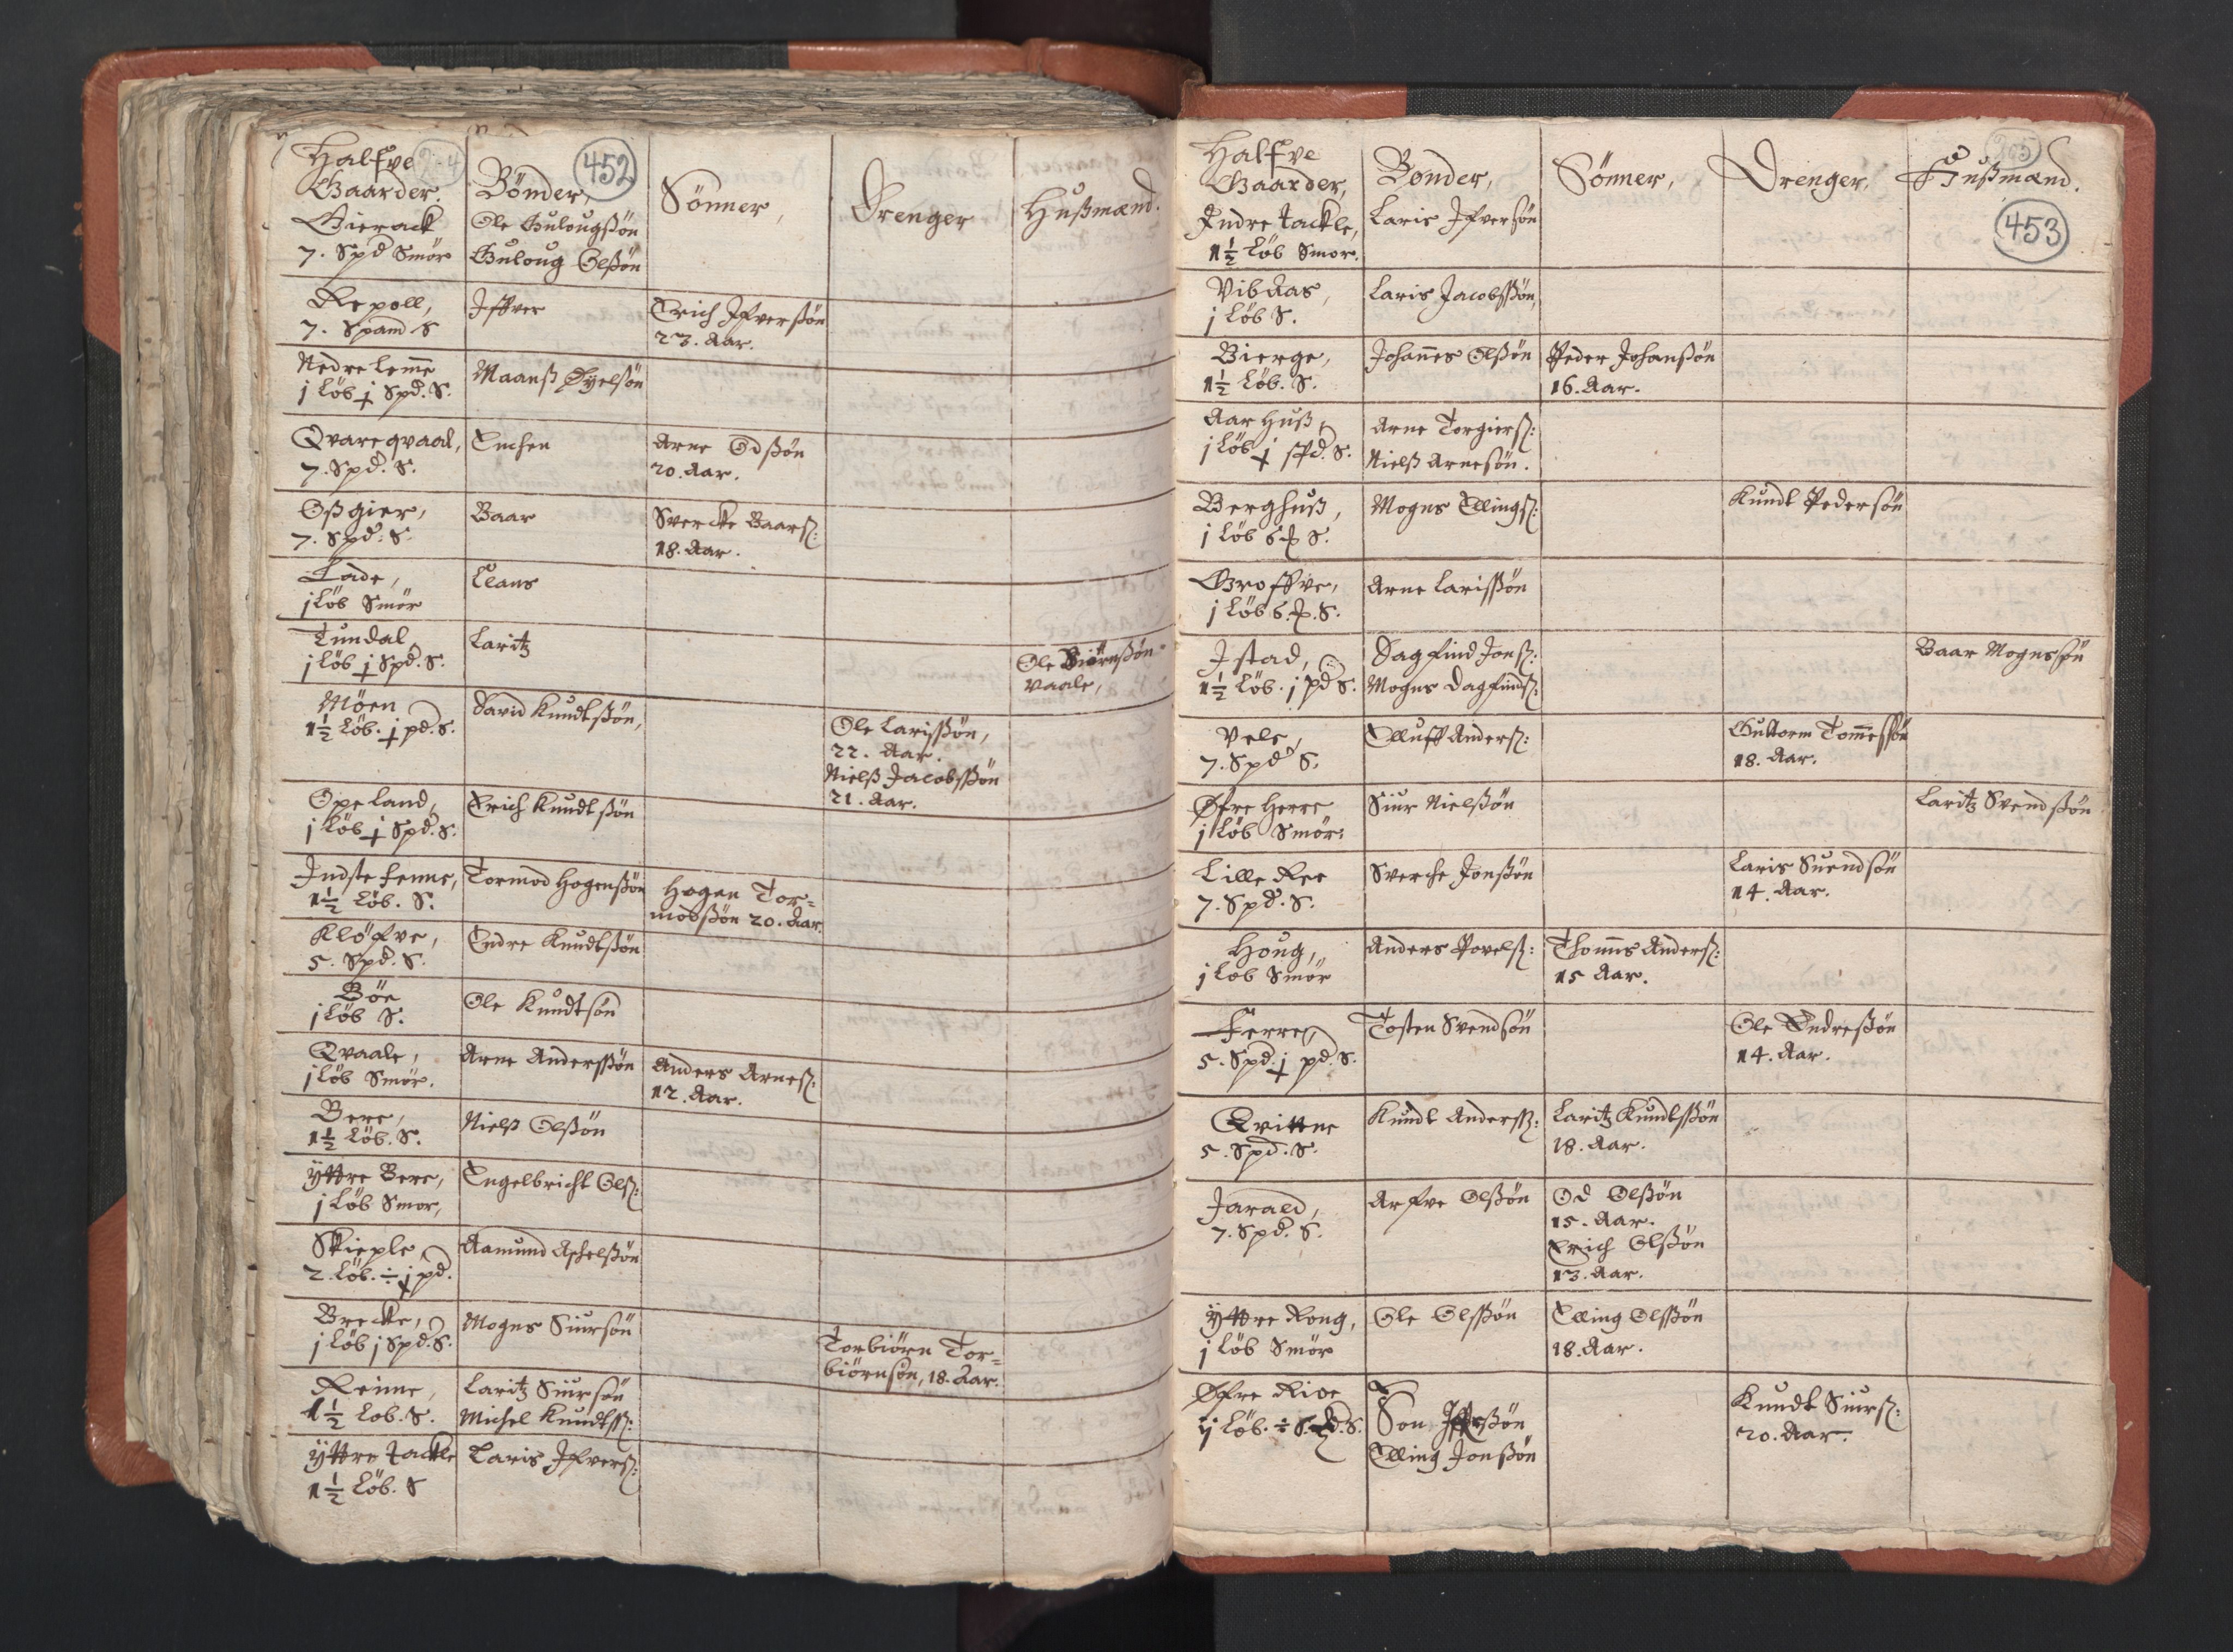 Halfve
Gaarder.
Bönder,
452
Sönner,
Drenger
Hußmænd.
Gierack
7. Spd Smör
Ole Gulougßön
Guloug Olßön
Repoll,
7. Spand S
Iffver
Erich Ifverßön
23. Aar.
Nedre Leme
j Löb j Spd. S.
Maanß Øyelßön
Qvareqvaal,
7. Spd. S.
Enchen
Arne Odßön
20. Aar.
Oßgier,
7. Spd. S.
Baar
Svercke Baarß:
18. Aar.
Lade,
j Löb Smör
Clans
Tundal
j Löb j Spd. S.
Laritz
Ole Biörnßön
Vaale,
Möen
1½ Löb. j pd. S.
David Knudtßön,
Ole Larisßön,
22. Aar.
Nielß Jacobsßön
21. Aar.
Opeland,
j Löb j Spd. S.
Erich Knudtßön
Indste Fenne,
1½ Löb. S.
Tormod Hogenßön
Hogen Tor=
modßön 20. Aar.
Klöfve,
5. Spd. S.
Endre Knudtßön
Böe
j Löb S.
Ole Knudtsön
Qvaale,
j Löb Smör.
Arne Andersßön
Anders Arneß:
12. Aar.
Bere,
1½ Löb. S.
Nielß Olßön
Yttre Bere,
j Löb Smor,
Engelbricht Olß:
Skieple,
2. Löb. ÷ j pd.
Aamund Aschelßön
Brecke,
j Löb j Spd. S.
Mogns Siursön
Torbiörn Tor=
biörnsön, 18. Aar.
Reime,
1½ Lob. S.
Laritz Siursön
Michel Knudtß:
Yttre Tackle
1½ Löb. S
Laris Ifverß:
Halfve
Gaarder,
Bönder,
Sönner,
Drenger,
Hußmænd.
453
Indre Tackle,
1½ Löb Smor.
Laris Ifversön
Vibaas,
j Löb S.
Laris Jacobsßön,
Bierge,
1½ Löb. S.
Johannes Olßön
Peder Johanßön
16. Aar.
Aarhuß,
j Löb j spd. S.
Arne Torgierß:
Nielß Arnesön.
Berghuß,
j Löb 6 ꝑ S.
Mogns Ellingß:
Kundt Pedersön
Groffve,
j Löb 6. ꝑ. S.
Arne Larisßön
Istad,
1½ Löb. j pd S.
Dagfind Jonß:
Mogns Dagfindß:
Baar Mognssön
Vele,
7. Spd S.
Elluff Anderß:
Guttorm Tomesßön
18. Aar.
Øfre Herre
j Löb Smör
Siur Nielßön
Laritz Svendßön
Lille Ree
7. Spd. S.
Sverche Jonßön
Laris Suendsön
14. Aar.
Houg,
j Löb Smör
Anders Povelß:
Thoms Anderß:
15 Aar.
Ferre,
5. Spd. j pd. S.
Tosten Svendsön
Ole Endreßön
14. Aar.
Qvittne
5. Spd. S.
Kundt Andersß:
Laritz Kundtsßön
18. Aar.
Jarald,
7. Spd. S.
Arfve Olßön
Od Olßön
15. Aar.
Erich Olßön
13. Aar.
Yttre Rong,
j Löb Smör
Ole Olsßön
Elling Olsßön
18. Aar.
Øfre Rioe
ij Löb. ÷
Jon
Elling Jonßön
Kundt Siurß:
20. Aar.